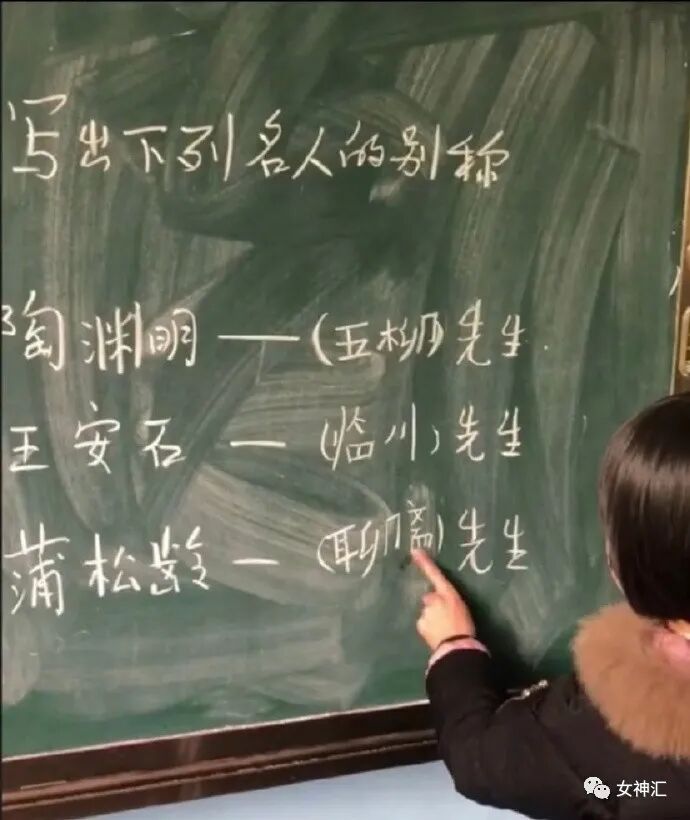 写出下列名人的别称
陶渊明——(五柳)先生
王安石—(临川)先生
蒲松龄—(聊斋)先生
女神汇